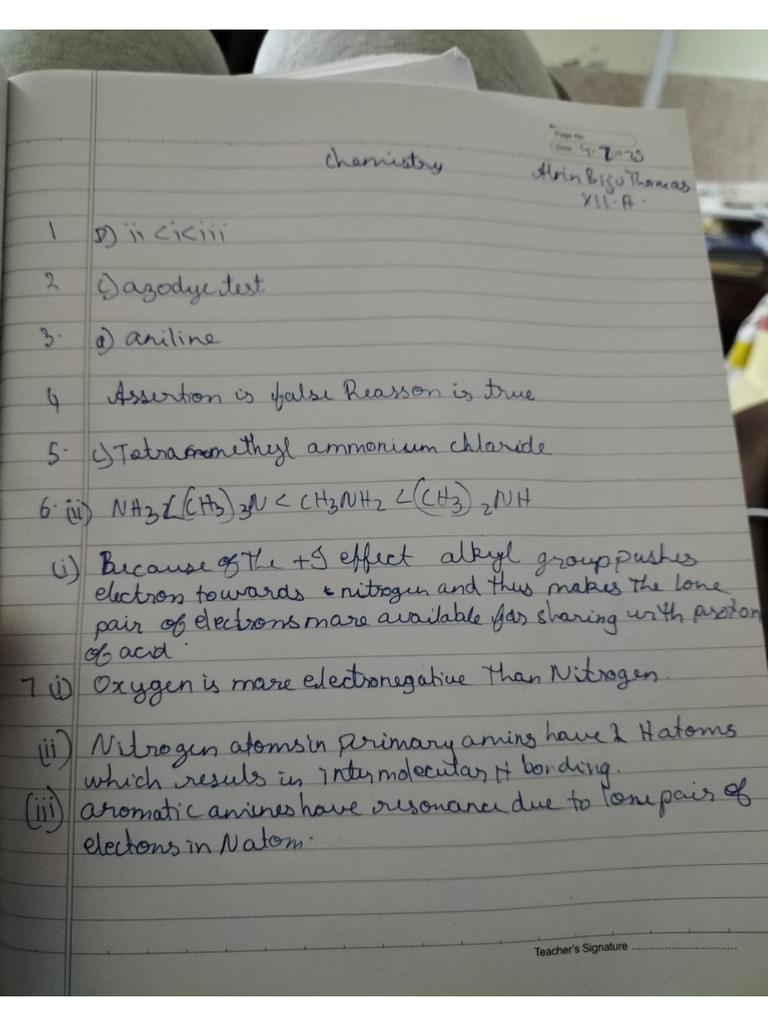 Page No.
Date 4.7.25
Chemistry
Alvin Biju Thomas
XII-A.
1 D) ii < i < iii
2 c) azodye test
3. a) aniline
4 Assertion is false Reasson is true
5. c) Tetramethyl ammonium chloride
6. (ii) NH3 < (CH3)3N < CH3NH2 < (CH3)2NH
(i) Because of the +I effect alkyl group pushes
electron towards nitrogen and thus makes the lone
pair of electrons more available for sharing with proton
of acid.
7 (i) Oxygen is more electronegative than Nitrogen.
(ii) Nitrogen atoms in primary amins have 2 H atoms
which resuls in intermolecular H bonding.
(iii) aromatic amines have resonance due to lone pair of
electons in N atom.
Teacher's Signature